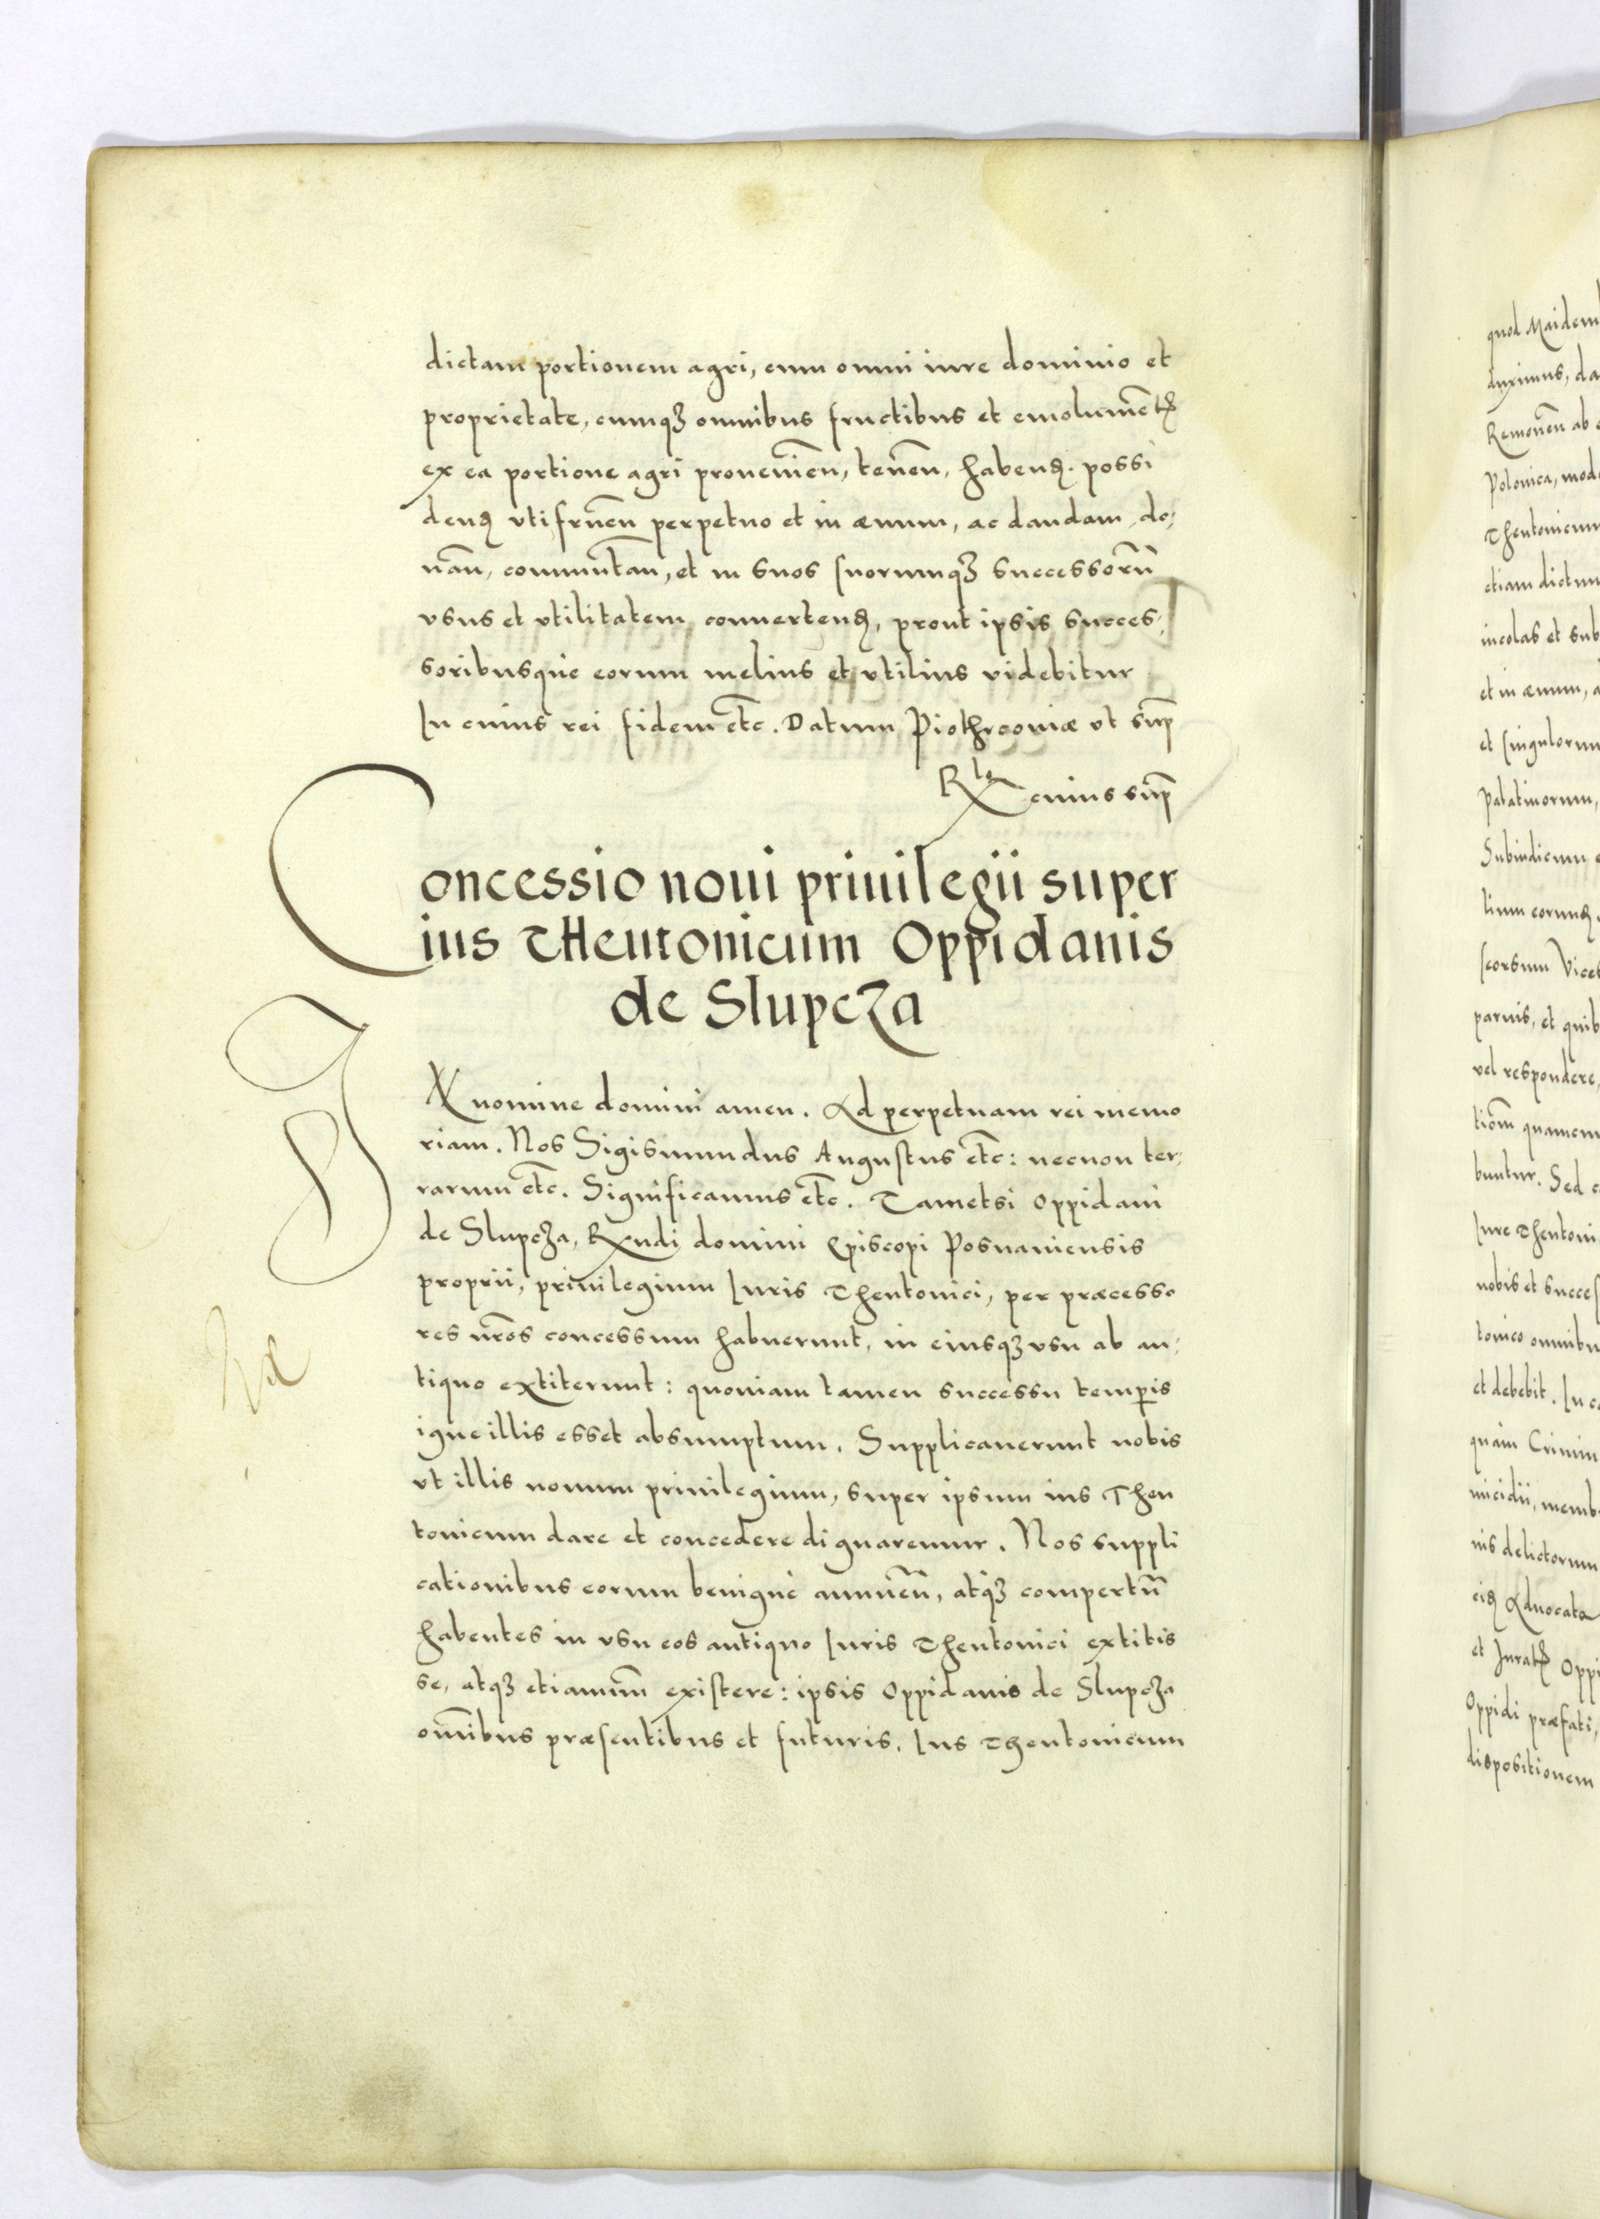 dictam portionem agri, cum omni iure dominio et
proprietate, cumqꝫ omnibus fructibus et emolumẽtꝭ
ex ea portione agri proueniẽn, tenẽn, habenꝰ. possi
denꝰ vtifruẽn perpetuo et in æuum, ac dandam, do,
nañ, commutañ, et in suos suorumqꝫ successorũ
vsus et vtilitatem conuertenꝰ, prout ipsis succes,
soribusque eorum melius et vtilius videbitur
In cuius rei fidem etc. Datum Piothrcouiæ vt sup̃
Rla cuius sup̃
Concessio noui priuilegii super
ius THeutonicum Oppidanis
de Slupcza
IN nomine domini amen. Ad perpetuam rei memo
riam. Nos Sigismundus Augustus etc: necnon ter,
rarum etc. Significamus etc. Tametsi oppidani
de Slupcza, Rxndi domini Episcopi Posnaniensis
proprii, priuilegium Iuris Theutonici, per præcesso
res nr̃os concessum habuerunt, in eiusqꝫ vsu ab an,
tiquo extiterunt: quoniam tamen successu temp̃is
igne illis esset absumptum. Supplicauerunt nobis
vt illis nouum priuilegium, super ipsum ius Theu
tonicum dare et concedere dignaremur. Nos suppli
cationibus eorum benigne annuẽn, atqꝫ compertũ
habentes in vsu eos antiquo Iuris Theutonici extitis
se, atqꝫ etiamnũm existere: ipsis oppidanis de Slupcza
om̃ibus præsentibus et futuris. Ius Theutonicum
quod Maidem
duximus, da
Remouẽn ab
Polonica, mod
Theutonicum
etiam dictum
incolas et sub
et in æuum, a
et singulorum
Palatinorum,
Subiudicum
lium eorumꝰ
seorsum Vices
paruis, et quib
vel respondere,
tiõm quamcum
buntur. Sed
Iure Theutoni
nobis et succes
tonico omnibu
et debebit. In c
quàm Crimin
micidii, memb
uis delictorum
eiꝰ Aduocato
et Juratꝭ Oppi
Oppidi præfati,
dispositionem